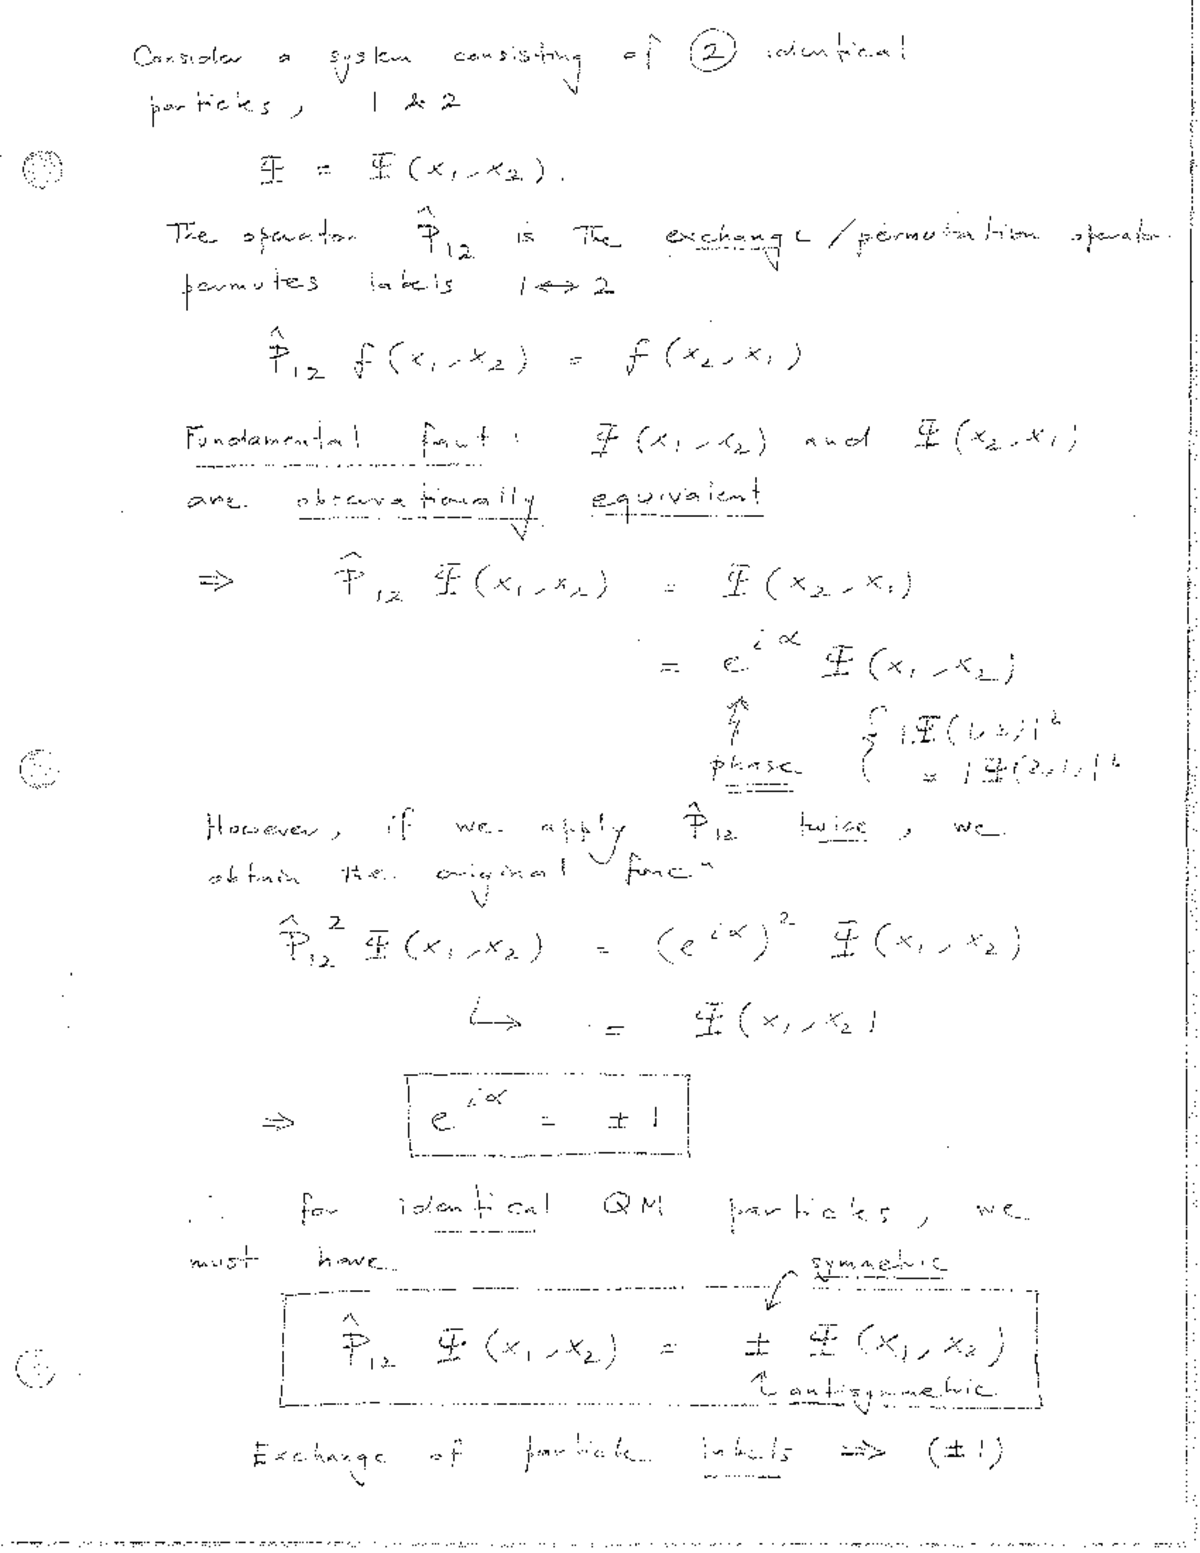 Consider a system consisting of ② identical
particles, 1 & 2
Ψ = Ψ(x₁, x₂).
The operator P̂₁₂ is the exchange / permutation operator
permutes labels 1 ↔ 2
P̂₁₂ f(x₁, x₂) = f(x₂, x₁)
Fundamental fact: Ψ(x₁, x₂) and Ψ(x₂, x₁)
are observationally equivalent
⇒ P̂₁₂ Ψ(x₁, x₂) = Ψ(x₂, x₁)
= e^{iα} Ψ(x₁, x₂)
↑ { |Ψ(1,2)|²
phase = |Ψ(2,1)|²
However, if we apply P̂₁₂ twice, we
obtain the original funcⁿ
P̂₁₂² Ψ(x₁, x₂) = (e^{iα})² Ψ(x₁, x₂)
↳ = Ψ(x₁, x₂)
⇒ e^{iα} = ± 1
∴ for identical QM particles, we
must have
symmetric
P̂₁₂ Ψ(x₁, x₂) = ± Ψ(x₁, x₂)
antisymmetric
Exchange of particle labels ⇒ (±1)